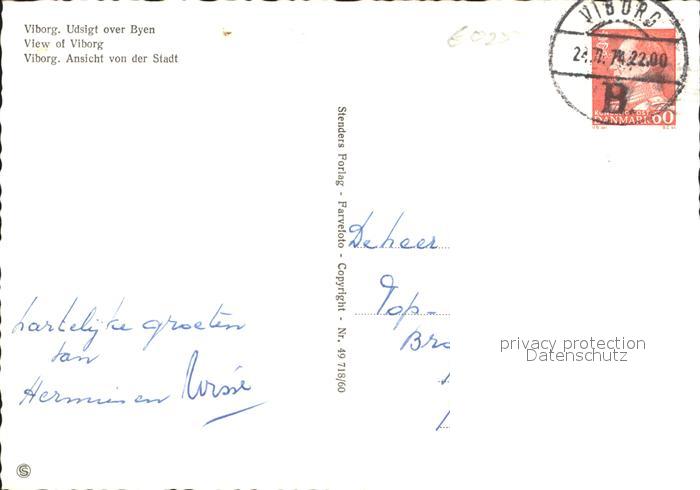 Viborg. Udsigt over Byen
View of Viborg
Viborg. Ansicht von der Stadt
VIBORG
22.00
B
DANMARK 60
Stenders Forlag - Farvefoto - Copyright - Nr. 49 718/60
De heer
Top-
privacy protection
Datenschutz
hartelijke groeten
van
Hermien en
S